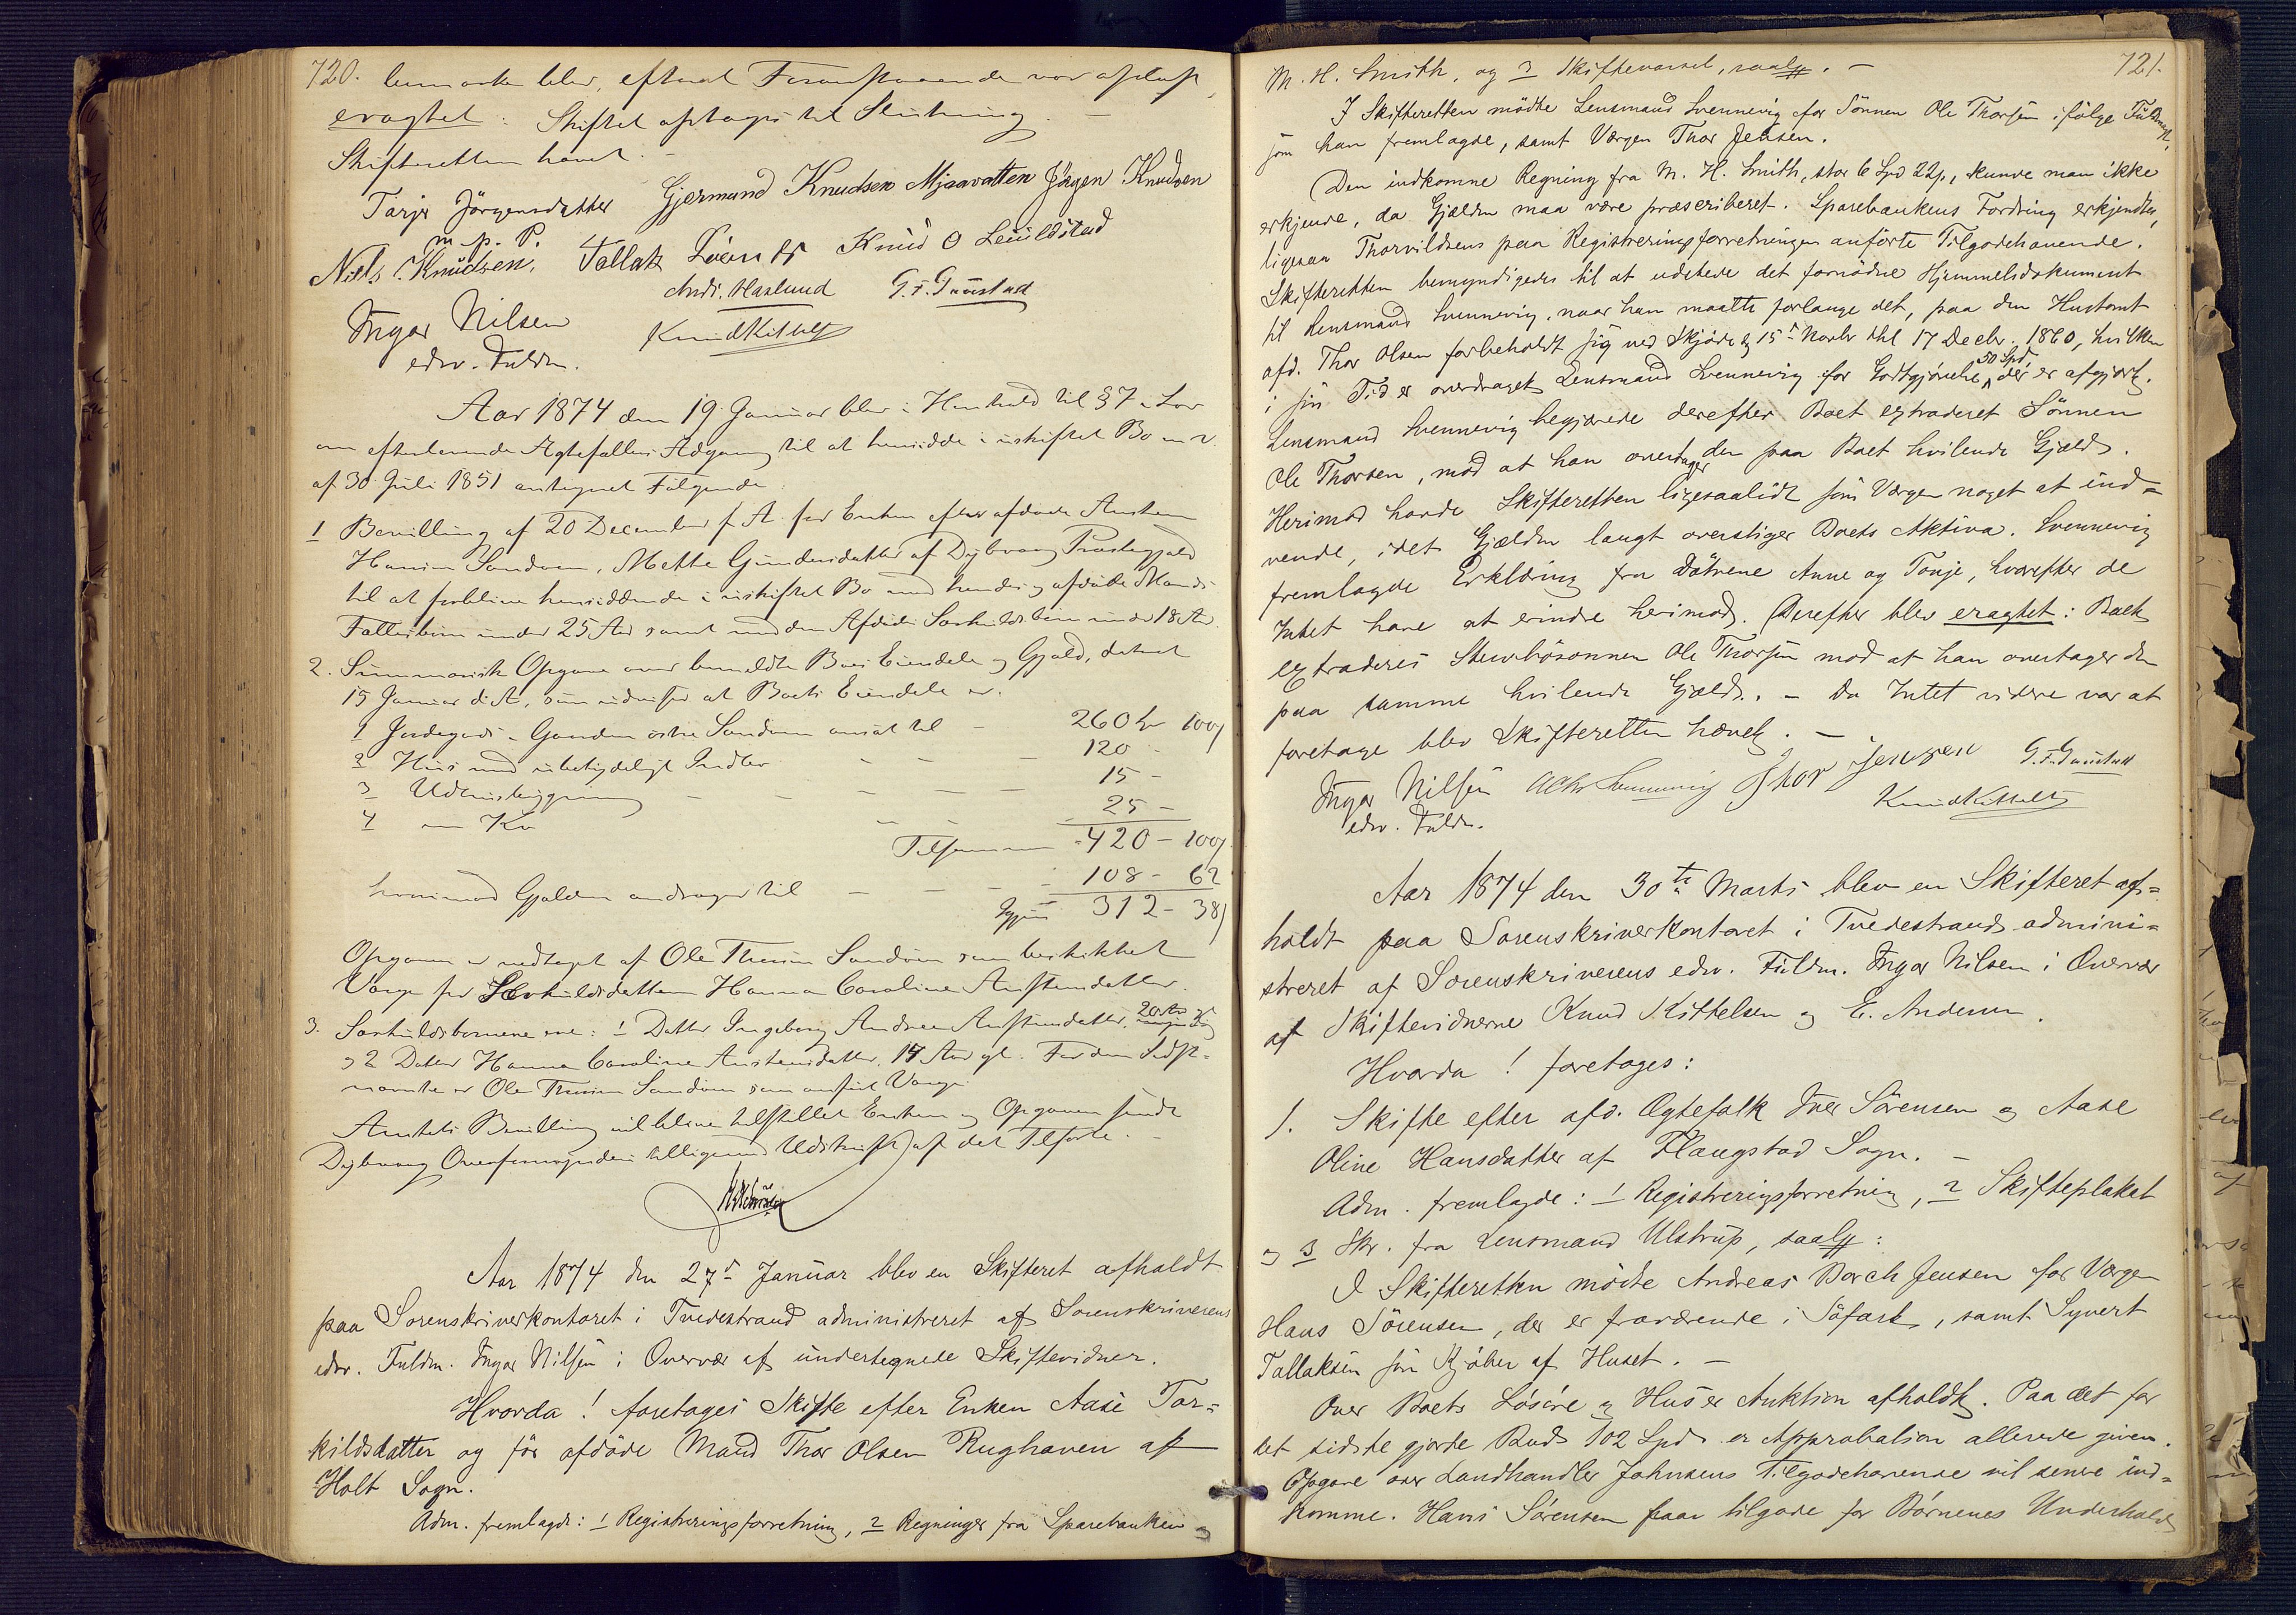 720. bemærke blev, efterat Foranstaaende var oplæst,
eragtet: Skiftet optages til Slutning. —
Skifteretten hævet. —
Tarjer Jörgensdatter Gjermund Knudsen Mjaavatten Jörgen Knudsen
m. p. P.
Niels Knudsen. Tallak Knud O Leüüldstad
Andr. Haslund G. F. Gunstad
Ingar Nilsen Knud Kittels
edsv. Fuldm.
Aar 1874 den 19 Januar blev i Henhold til § 7 i Lov
om efterlevende Ægtefælles Adgang til at hensidde i uskiftet Bo m. v.
af 30 Juli 1851 antegnet Følgende
1 Bevilling af 20 December f. A. for Enken efter afdøde Austen
Hansen Sandøen, Mette Gundersdatter af Dybvaag Præstegjæld
til at forblive hensiddende i uskiftet Bo med hendes og afdøde Mands
Fællesbørn under 25 Aar samt med den Afdødes Særkuldsbørn under 18 Aar.
2. Summarisk Opgave over bemeldte Boes Eiendele og Gjæld, dateret
15 Januar d. A., som udviser at Boets Eiendele er.
1 Jordegods i Gaarden østre Sandøen ansat til — 260 Spd 100 β
2 Huus med ubetydeligt Indbo — — — 120 -
3 Udhuusbygning — — — — 15 -
4 en Ko — — 25 -
Tilsammen - 420 - 100 β
hvorimod Gjælden andrager til — — — 108 - 62
Igjen 312 - 38 β
Opgaven er vedtaget af Ole Thorsen Sandøen som beskikket
Værge for Særkuldsdatteren Hanna Caroline Austensdatter.
3. Særkuldsbørnene ere: 1 Datter Ingeborg Andrea Austensdatter, 20 Aar
og 2 Datter Hanna Caroline Austensdatter, 17 Aar gl. For den Sidst-
nævnte er Ole Thorsen Sandøen som anført Værge.
Amtets Bevilling vil blive tilstillet Enken og Opgaven sendt
Dybvaag Overformynderi tilligemed Udskrift af det Tilførte. —
Aar 1874 den 27de Januar blev en Skifteret afholdt
paa Sorenskriverkontoret i Tvedestrand administreret af Sorenskriverens
edsv. Fuldm. Ingar Nilsen i Overvær af undertegnede Skiftevidner.
Hvorda! foretages Skifte efter Enken Aase Tar=
kildsdatter og før afdöde Mand Thor Olsen Rughaven af
Holt Sogn.
Adm. fremlagde: 1 Registreringsforretning, 2 Regninger fra Sparebanken og
721.
M. H. Smith, og 3 Skiftevarsel, saal. —
I Skifteretten mödte Lensmand Svennevig for Sönnen Ole Thorsen ifölge Fuldmagt,
som han fremlagde, samt Værgen Thor Jensen.
Den indkomne Regning fra M. H. Smith, stor 6 Spd 22 β, kunde man ikke
erkjende, da Gjælden maa være præscriberet. Sparebankens Fordring erkjendtes,
ligesaa Thorvildsens paa Registreringsforretningen anförte Tilgodehavende.
Skifteretten bemyndiges til at udstede det fornödne Hjemmelsdokument
til Lensmand Svennevig, naar han maatte forlange det, paa den Hustomt
afd. Thor Olsen forbeholdt sig ved Skjöde dg 15de Novbr thl 17 Decbr. 1860, hvilken
i sin Tid er overdraget Lensmand Svennevig for Godtgjörelse, 50 Spd, der er afgjort.
Lensmand Svennevig begjærede derefter Boet extraderet Sönnen
Ole Thorsen, mod at han overtager den paa Boet hvilende Gjæld.
Herimod havde Skifteretten ligesaalidt som Værgen noget at ind=
vende, idet Gjælden langt overstiger Boets Aktiva. Svennevig
fremlagde Erklæring fra Dötrene Anne og Tonje, hvorefter de
Intet have at erindre herimod. Derefter blev eragtet: Boet
extraderes Stervbösönnen Ole Thorsen mod at han overtager den
paa samme hvilende Gjæld. — Da Intet videre var at
foretage blev Skifteretten hævet. —
Ingar Nilsen Svennevig Thor Jensen G. F. Gunstad
edsv. Fuldm. Knud Kittels
Aar 1874 den 30te Marts blev en Skifteret af=
holdt paa Sorenskriverkontoret i Tvedestrand admini=
streret af Sorenskriverens edsv. Fuldm. Ingar Nilsen i Overvær
af Skiftevidnerne Knud Kittelsen og E. Andersen.
Hvorda! foretages:
1. Skifte efter afd. Ægtefolk Iver Sörensen og Aase
Oline Hansdatter af Flangstad Sogn. —
Adm. fremlagde: 1 Registreringsforretning, 2 Skifteplakat
og 3 Skr. fra Lensmand Ulstrup, saal:
I Skifteretten mödte Andreas Borch Jensen for Værgen
Hans Sörensen, der er fraværende i Söfart, samt Syvert
Tallaksen som Kjöber af Huset. —
Over Boets Lösöre og Hus er Auktion afholdt. Paa det for
det sidste gjorte Bud 102 Spd er Approbation allerede given.
Opgave over Landhandler Johnsens Tilgodehavende vil senere ind=
komme. Hans Sörensen faar tilgode for Börnenes Underhold